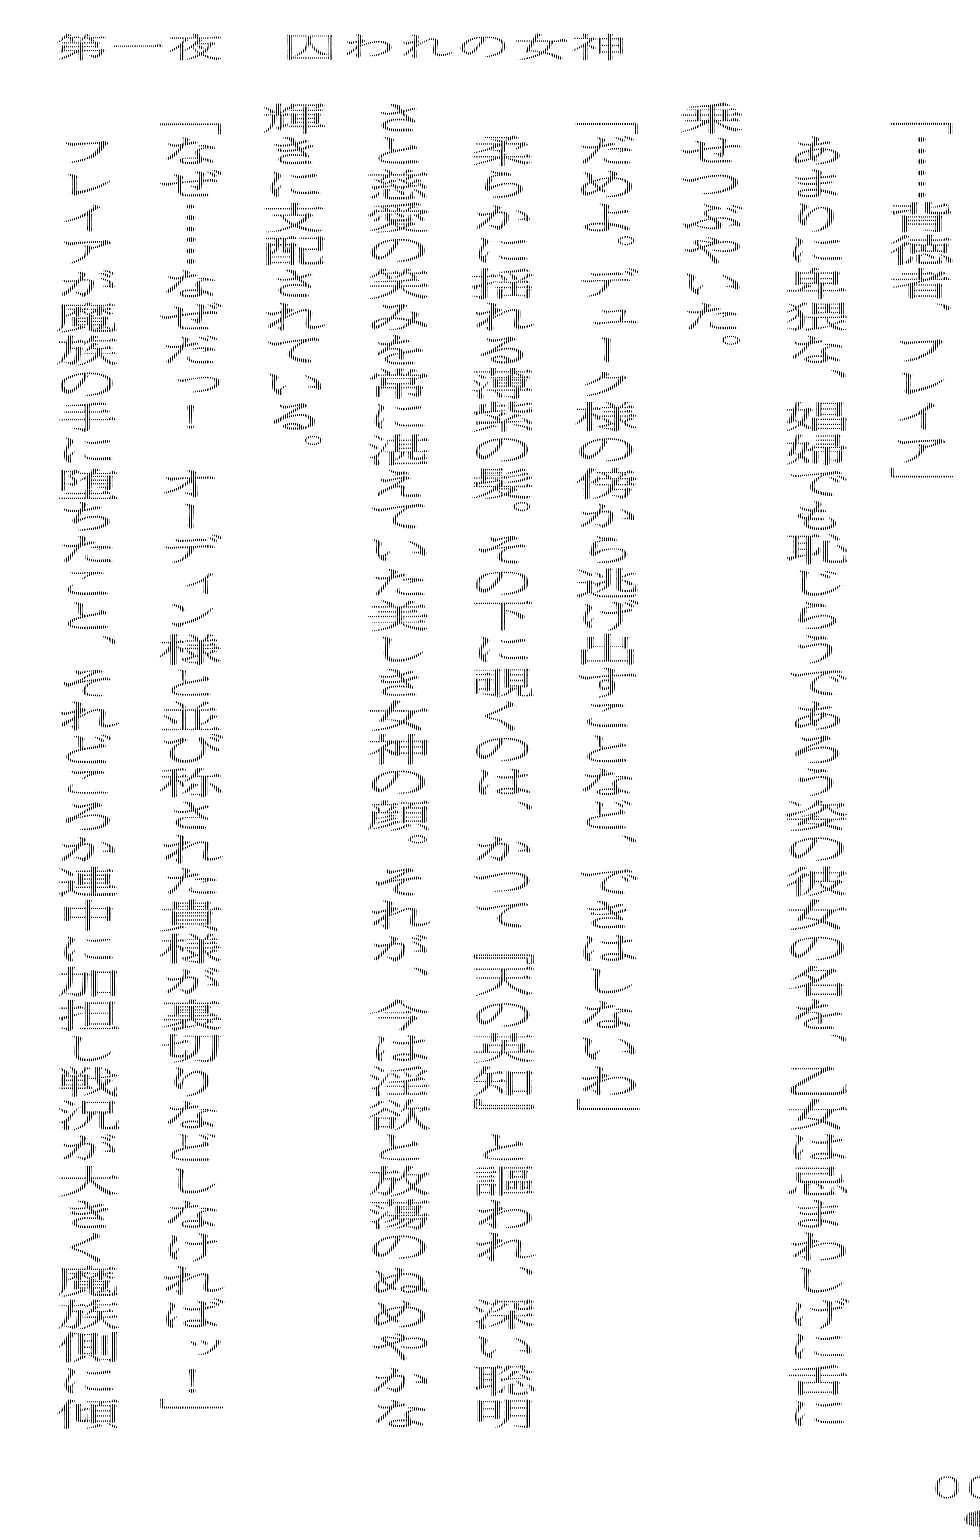 第一夜　囚われの女神
「……背徳者、フレイア」
　あまりに卑猥な、娼婦でも恥じらうであろう姿の彼女の名を、乙女は忌まわしげに舌に
乗せつぶやいた。
「だめよ。デューク様の傍から逃げ出すことなど、できはしないわ」
　柔らかに揺れる薄紫の髪。その下に覗くのは、かつて『天の英知』と謳われ、深い聡明
さと慈愛の笑みを常に湛えていた美しき女神の顔。それが、今は淫欲と放蕩のぬめやかな
輝きに支配されている。
「なぜ……なぜだっ！　オーディン様と並び称された貴様が裏切りなどしなければッ！」
　フレイアが魔族の手に堕ちたこと、それどころか連中に加担し戦況が大きく魔族側に傾